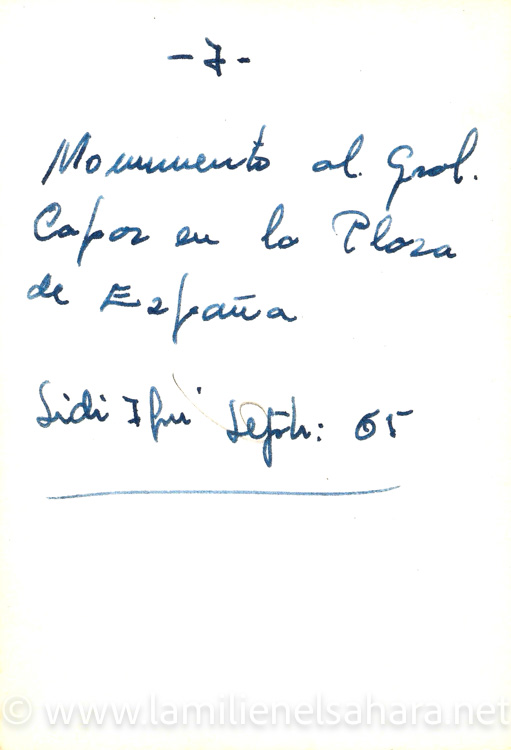 - 7 -
Monumento al. Gral.
Capaz en la Plaza
de España
Sidi Ifni Septb: 65
© www.lamilienelsahara.net